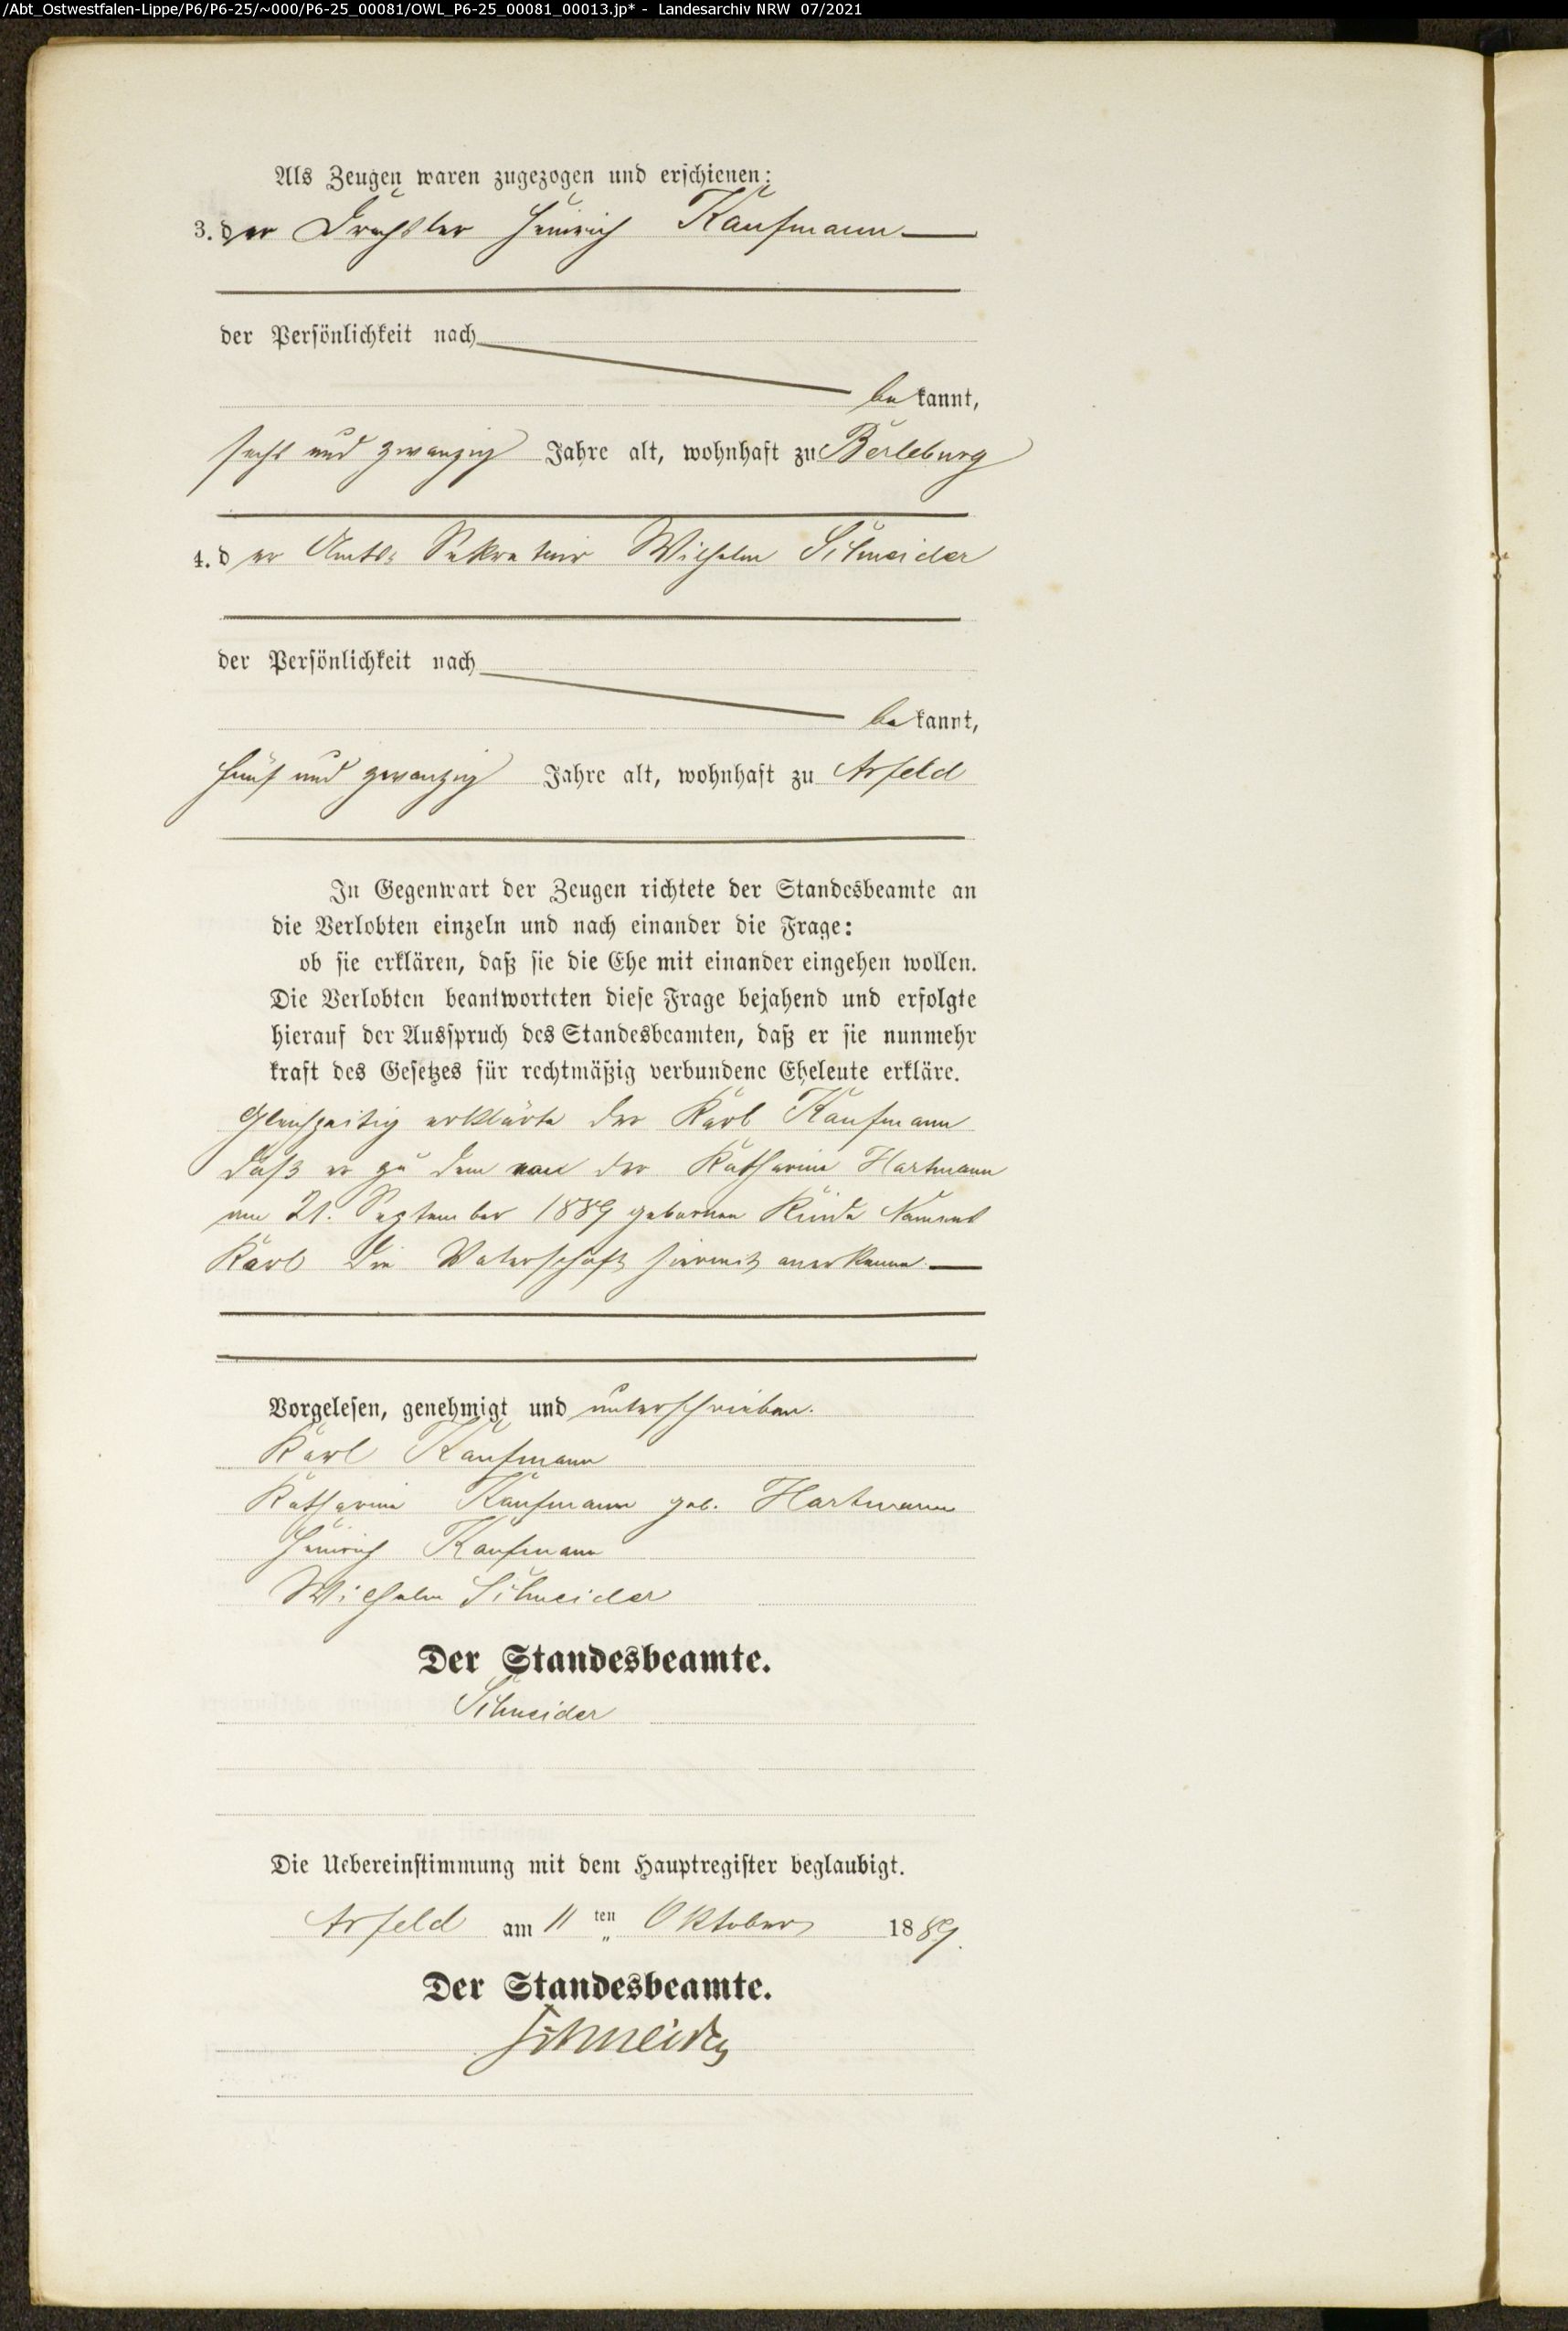 /Abt_Ostwestfalen-Lippe/P6/P6-25/~000/P6-25_00081/OWL_P6-25_00081_00013.jp* - Landesarchiv NRW 07/2021
Als Zeugen waren zugezogen und erschienen:
3. der Drechsler Heinrich Kaufmann
der Persönlichkeit nach
bekannt,
sechs und zwanzig Jahre alt, wohnhaft zu Berleburg
4. der Amts-Sekretair Wilhelm Schneider
der Persönlichkeit nach
bekannt,
fünf und zwanzig Jahre alt, wohnhaft zu Arfeld
In Gegenwart der Zeugen richtete der Standesbeamte an
die Verlobten einzeln und nach einander die Frage:
ob sie erklären, daß sie die Ehe mit einander eingehen wollen.
Die Verlobten beantworteten diese Frage bejahend und erfolgte
hierauf der Ausspruch des Standesbeamten, daß er sie nunmehr
kraft des Gesetzes für rechtmäßig verbundene Eheleute erkläre.
Gleichzeitig erklärte der Karl Kaufmann
daß er zu dem von der Katharine Hartmann
am 21. September 1889 geborenen Kinde Namens
Karl die Vaterschaft hiermit anerkenne
Vorgelesen, genehmigt und unterschrieben.
Karl Kaufmann
Katharine Kaufmann geb. Hartmann
Heinrich Kaufmann
Wilhelm Schneider
Der Standesbeamte.
Schneider
Die Uebereinstimmung mit dem Hauptregister beglaubigt.
Arfeld am 11ten Oktober 1889.
Der Standesbeamte.
Schneider